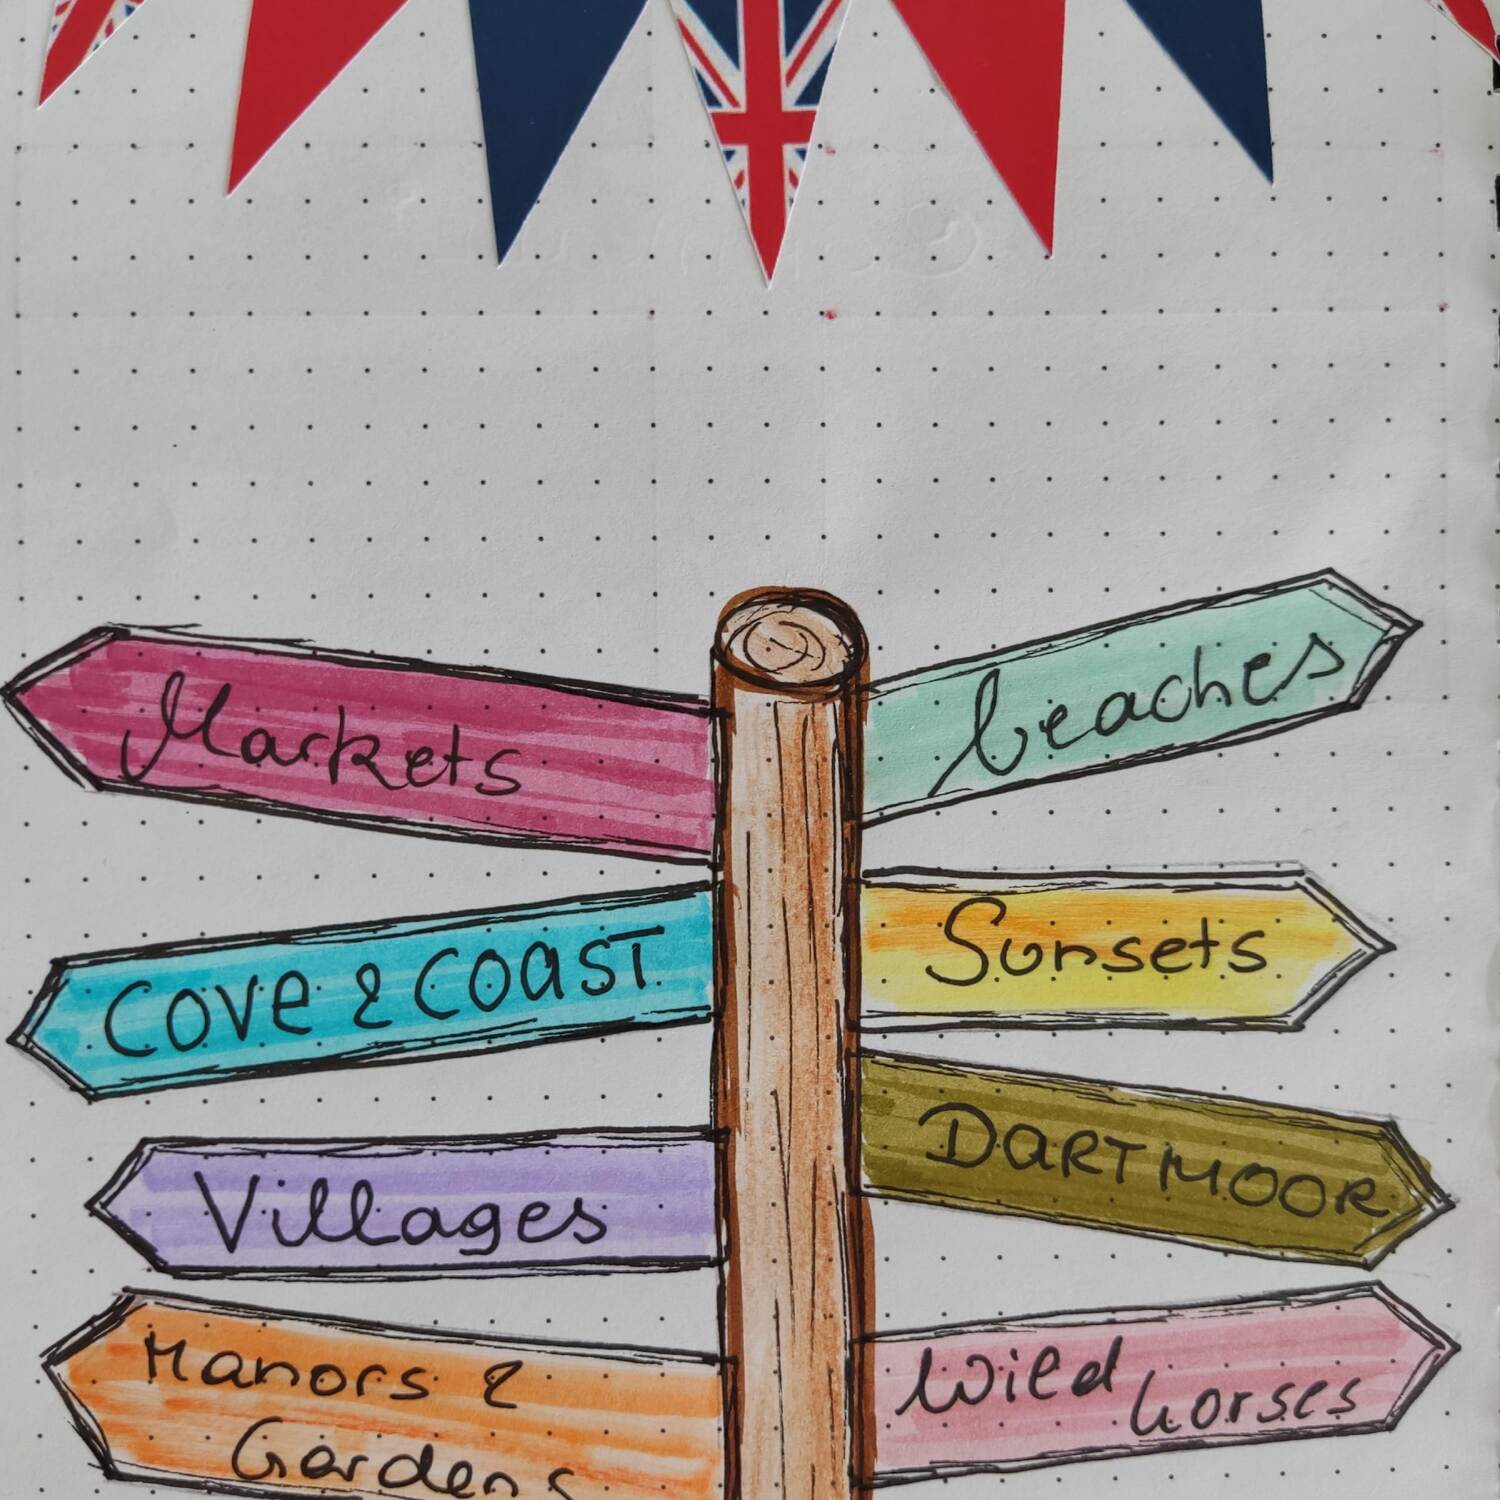 Markets
beaches
COVE & COAST
Sunsets
Villages
DARTMOOR
Manors &
Gardens
Wild
horses